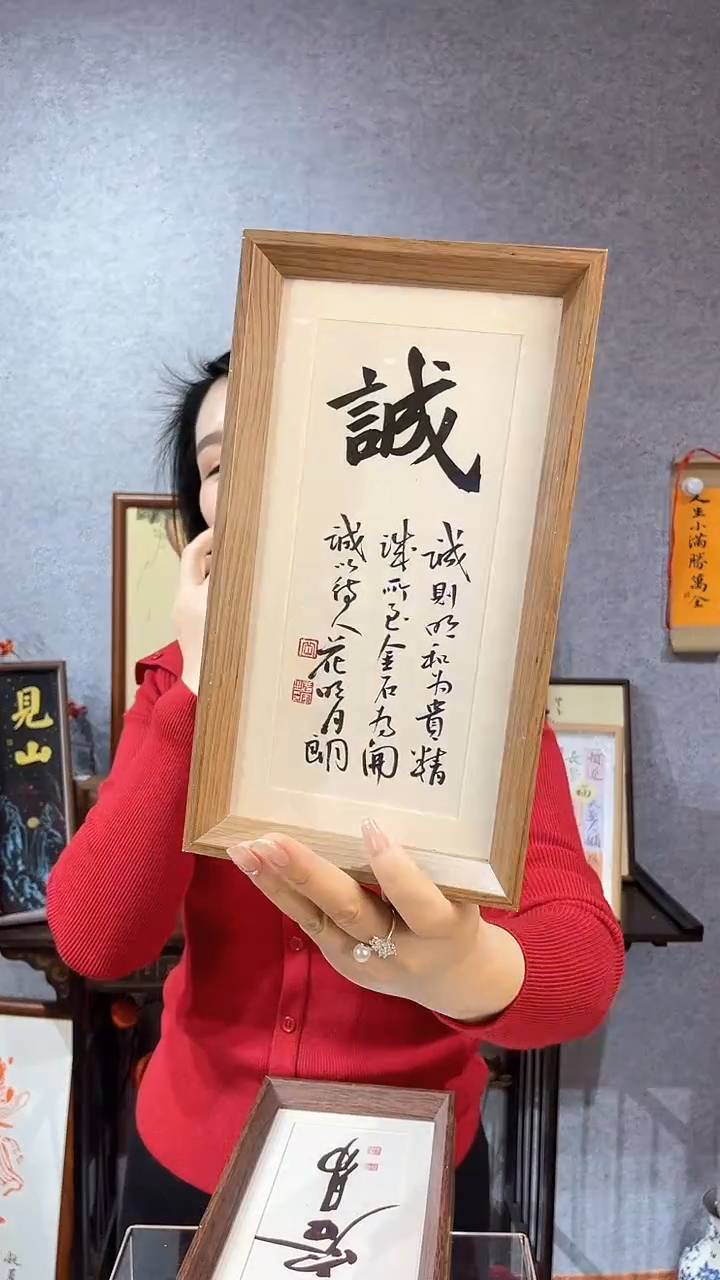 誠
誠則明和為貴精
誠所至金石為開
誠以待人花明月朗
見山
人生小滿勝萬全